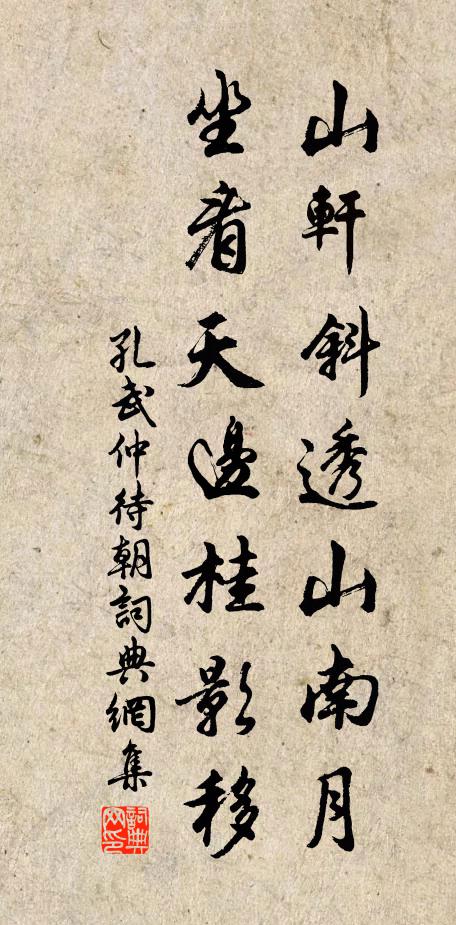 山軒斜透山南月
坐看天邊桂影移
孔武仲待朝詞典網集
詞典网印